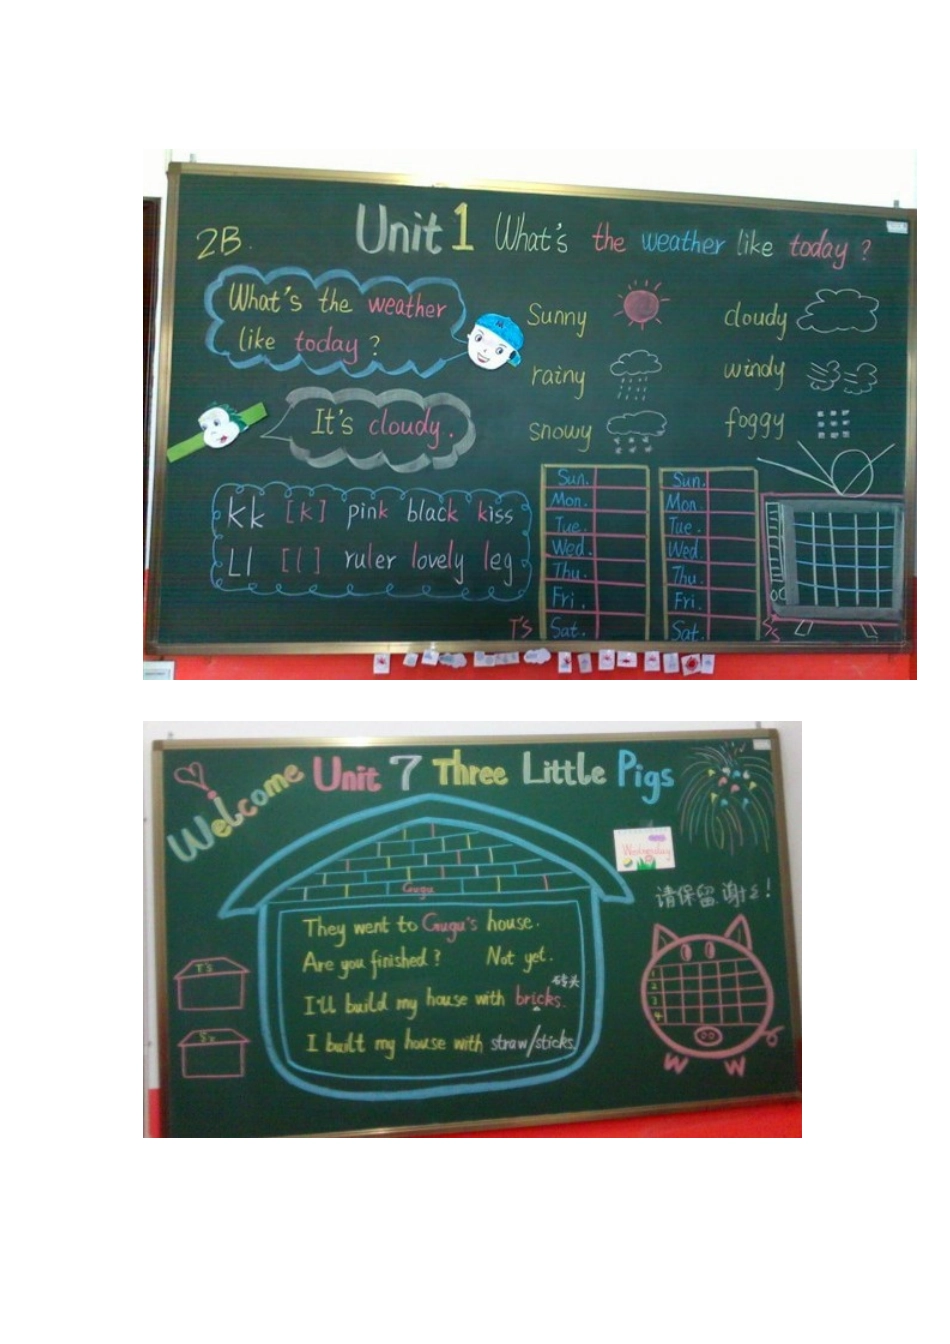 2B.
Unit 1 What's the weather like today ?
What's the weather
like today ?
It's cloudy.
Sunny
cloudy
rainy
windy
snowy
foggy
Kk [k] pink black kiss
Ll [l] ruler lovely leg
Sun.
Mon.
Tue.
Wed.
Thu.
Fri.
Sat.
T'S
Sun.
Mon.
Tue.
Wed.
Thu.
Fri.
Sat.
S's
Welcome Unit 7 Three Little Pigs
Wednesday
Gugu
请保留.谢谢!
They went to Gugu's house.
Are you finished ? Not yet.
砖头
I'll build my house with bricks.
I built my house with straw/sticks.
T's
S's
1
2
3
4